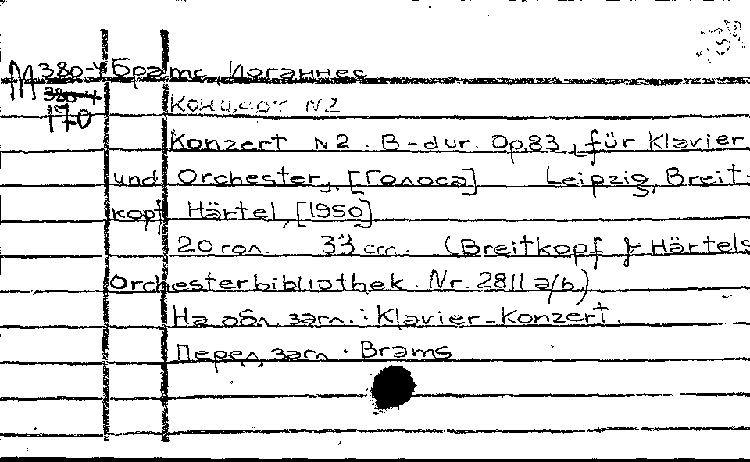 М 380-4 Брамс, Иоганнес
380-4
170
Концерт N2
Konzert N 2. B-dur. Op.83, für Klavier
und Orchester, [Голоса] Leipzig, Breit-
kopf Härtel, [1950]
20 гол. 33 cm. (Breitkopf & Härtels
Orchesterbibliothek. Nr. 2811 a/b.)
На обл. загл.: Klavier-Konzert.
Перед загл.: Brams